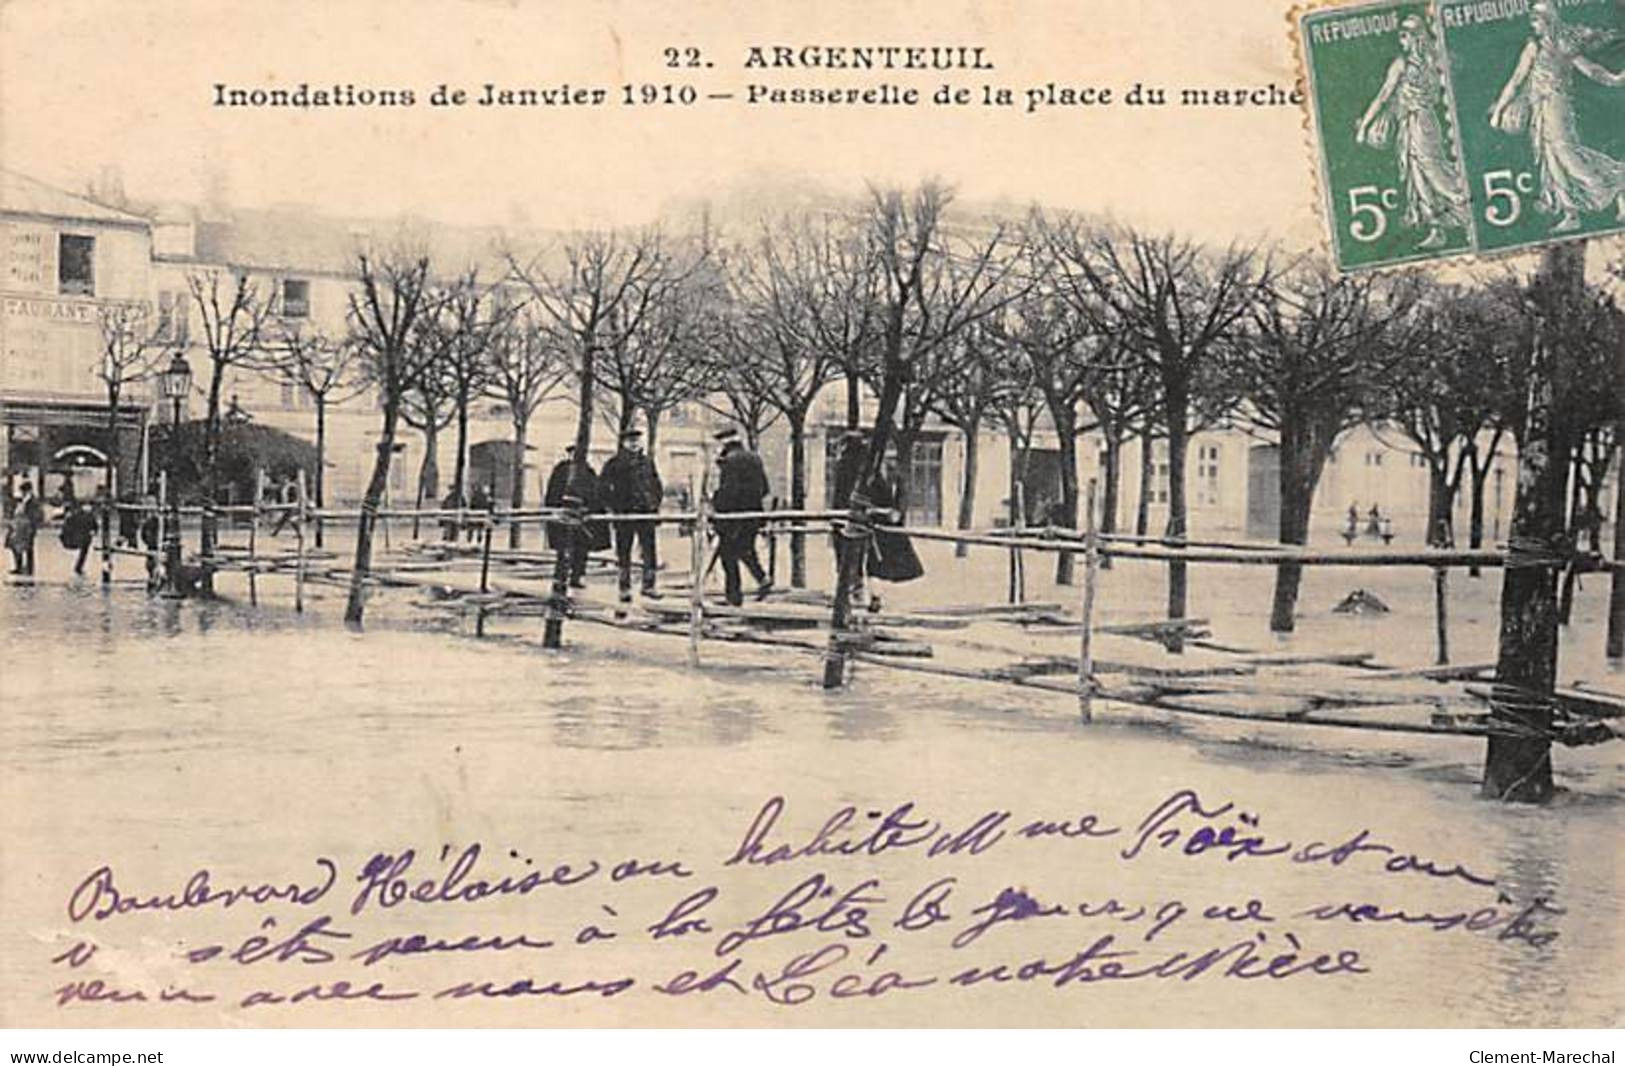 22. ARGENTEUIL
Inondations de Janvier 1910 — Passerelle de la place du marché
REPUBLIQUE
5c
REPUBLIQUE
5c
TAURANT
Boulevard Héloïse ou habite Mme Troïx et ou
v êts venu à la fête le jour, que vous êtes
venu avec nous et Léa notre Nièce
www.delcampe.net
Clement-Marechal